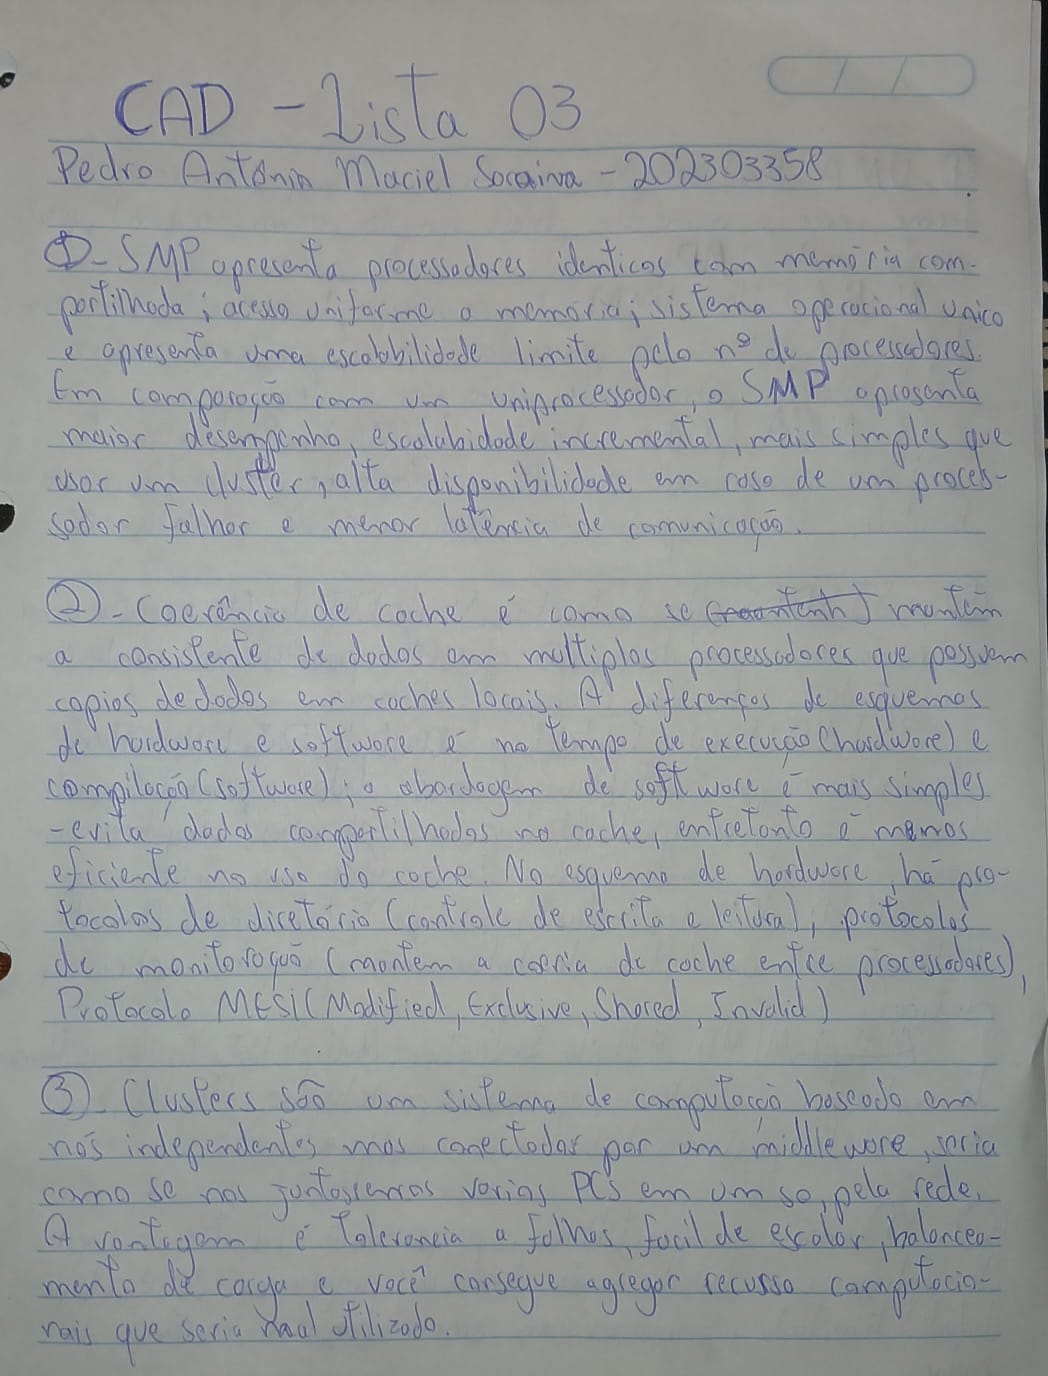 CAD - Lista 03
Pedro Antônin Maciel Socaiva - 202303358
①- SMP apresenta processadores identicos com memória com-
partilhada; acesso uniforme a memória; sistema operacional unico
e apresenta uma escalabilidade limite pelo nº de processadores.
Em comparação com um uniprocessador, o SMP aprosenta
maior desempenho, escalabidade incremental, mais simples que
usar um cluster, alta disponibilidade em caso de um proces-
sador falhar e menor latência de comunicação.
②- Coerência de cache é como se mantém
a consistente de dados em multiplos processadores que possuem
copias de dados em caches locais. A diferenças de esquemas
de hardware e software é no tempo de execução (hardware) e
compilação (software); a abordagem de software é mais simples
- evita dados compartilhados no cache, entretanto é menos
eficiente no uso do cache. No esquema de hardware, há pro-
tocolos de diretório (controle de escrita e leitura), protocolos
de monitoração (mantem a coeria de cache entre processadores),
Protocolo MESI (Modified, Exclusive, Shared, Invalid)
③- Clusters são um sistema de computação baseado em
nós independentes mas conectados por um middleware, seria
como se nos juntassemos varios PCs em um so, pela rede.
A vantagem é tolerancia a falhas, facil de escalar, balancea-
mento de carga e você consegue agregar recusso computacio-
nais que seria mal utilizado.